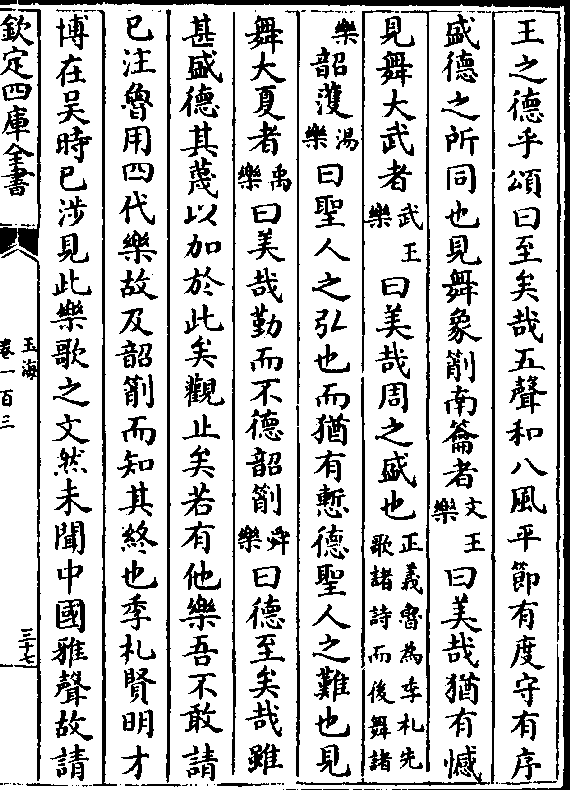 王之德乎頌曰至矣哉五聲和八風平節有度守有序
盛德之所同也見舞象箾南籥者文王樂曰美哉猶有憾
見舞大武者武王樂曰美哉周之盛也正義魯為季札先歌諸詩而後舞諸
樂韶濩湯樂曰聖人之弘也而猶有慙德聖人之難也見
舞大夏者禹樂曰美哉勤而不德韶箾舜樂曰德至矣哉雖
甚盛德其蔑以加於此矣觀止矣若有他樂吾不敢請
已注魯用四代樂故及韶箾而知其終也季札賢明才
博在吴時已涉見此樂歌之文然未聞中國雅聲故請
欽定四庫全書
玉海
卷一百三
三十七